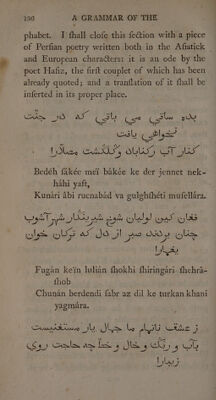 136 A GRAMMAR OF THE
phabet. I ſhall cloſe this ſection with a piece
of Perſian poetry written both in the Aſiatick
and European characters: it is an ode by the
poet Hafiz, the firſt couplet of which has been
already quoted; and a tranſlation of it ſhall be
inſerted in its proper place.
بده ساقي مي باقي که در جنّت
نخواهي يافت
کنار آب رکناباد وگلگشت مصلارا
Bedéh ſákée meï bákée ke der jennet nek-
háhi yaft,
Kunári âbi rucnabád va gulghſhéti muſellára.
فغان کين لوليان شوخ شيرينکار شهرآشوب
چنان بردند صبر از دل که ترکان خوان
يغمارا
Fugán keïn lulián ſhokhi ſhiringári ſhehrâ-
ſhob
Chunán berdendi ſabr az dil ke turkan khani
yagmára.
ز عشقت ناتمام ما جمال يار مستغنيست
بآب و رنگ و خال و خط چه حاجت روي
زيبارا